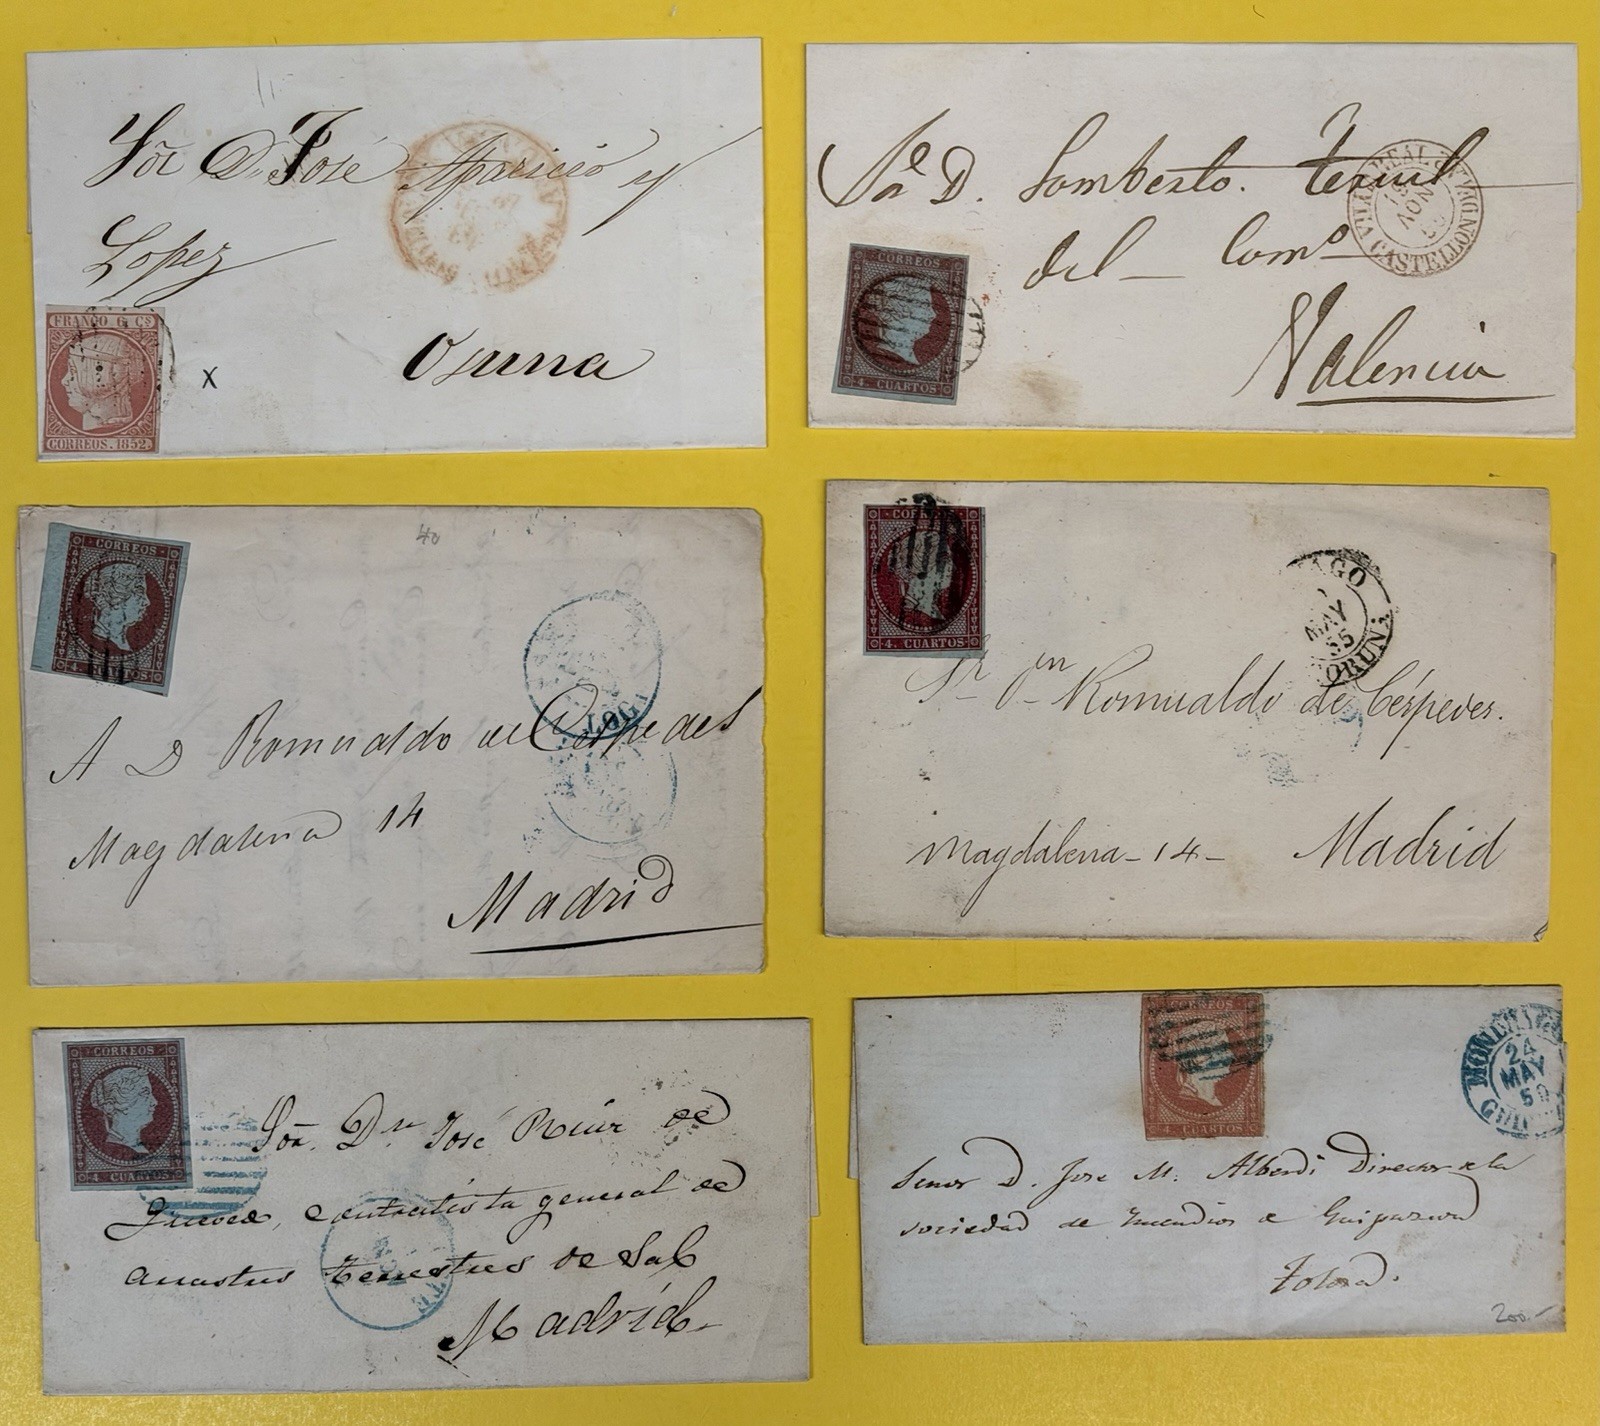 Sor. D. José Aparicio y
Lopez
FRANCO 6 Cs
CORREOS. 1852.
X
Osuna
Sor D. Lamberto. Teruel
VILLARREAL
NOV
CASTELLON
del Como
CORREOS
4. CUARTOS
Valencia
40
CORREOS
4. CUARTOS
LOG
A D Romualdo de Cespedes
Magdalena 14
Madrid
CORREOS
4. CUARTOS
AGO
MAY
55
ORUÑA
Sr Dn Romualdo de Céspedes.
Magdalena - 14 - Madrid
CORREOS
4. CUARTOS
Sor. Dn José Ruiz de
contratista general de
arrastres terrestres de Sal
TE
Madrid
CORREOS
4. CUARTOS
24
MAY
59
Señor D. Jose M. Alberdi Director de la
sociedad de Incendios de Guipuzcoa
Tolosa.
200.-